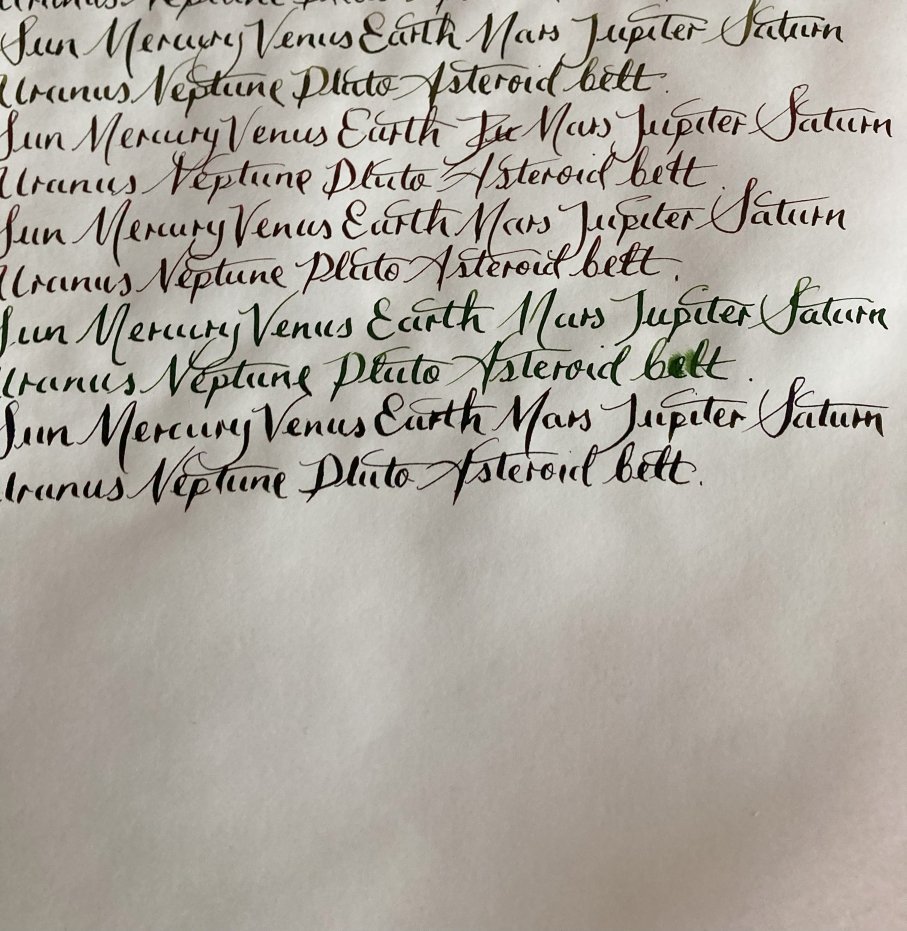 Uranus Neptune
Sun Mercury Venus Earth Mars Jupiter Saturn
Uranus Neptune Pluto Asteroid belt.
Sun Mercury Venus Earth Mars Jupiter Saturn
Uranus Neptune Pluto Asteroid belt.
Sun Mercury Venus Earth Mars Jupiter Saturn
Uranus Neptune Pluto Asteroid belt.
Sun Mercury Venus Earth Mars Jupiter Saturn
Uranus Neptune Pluto Asteroid belt.
Sun Mercury Venus Earth Mars Jupiter Saturn
Uranus Neptune Pluto Asteroid belt.